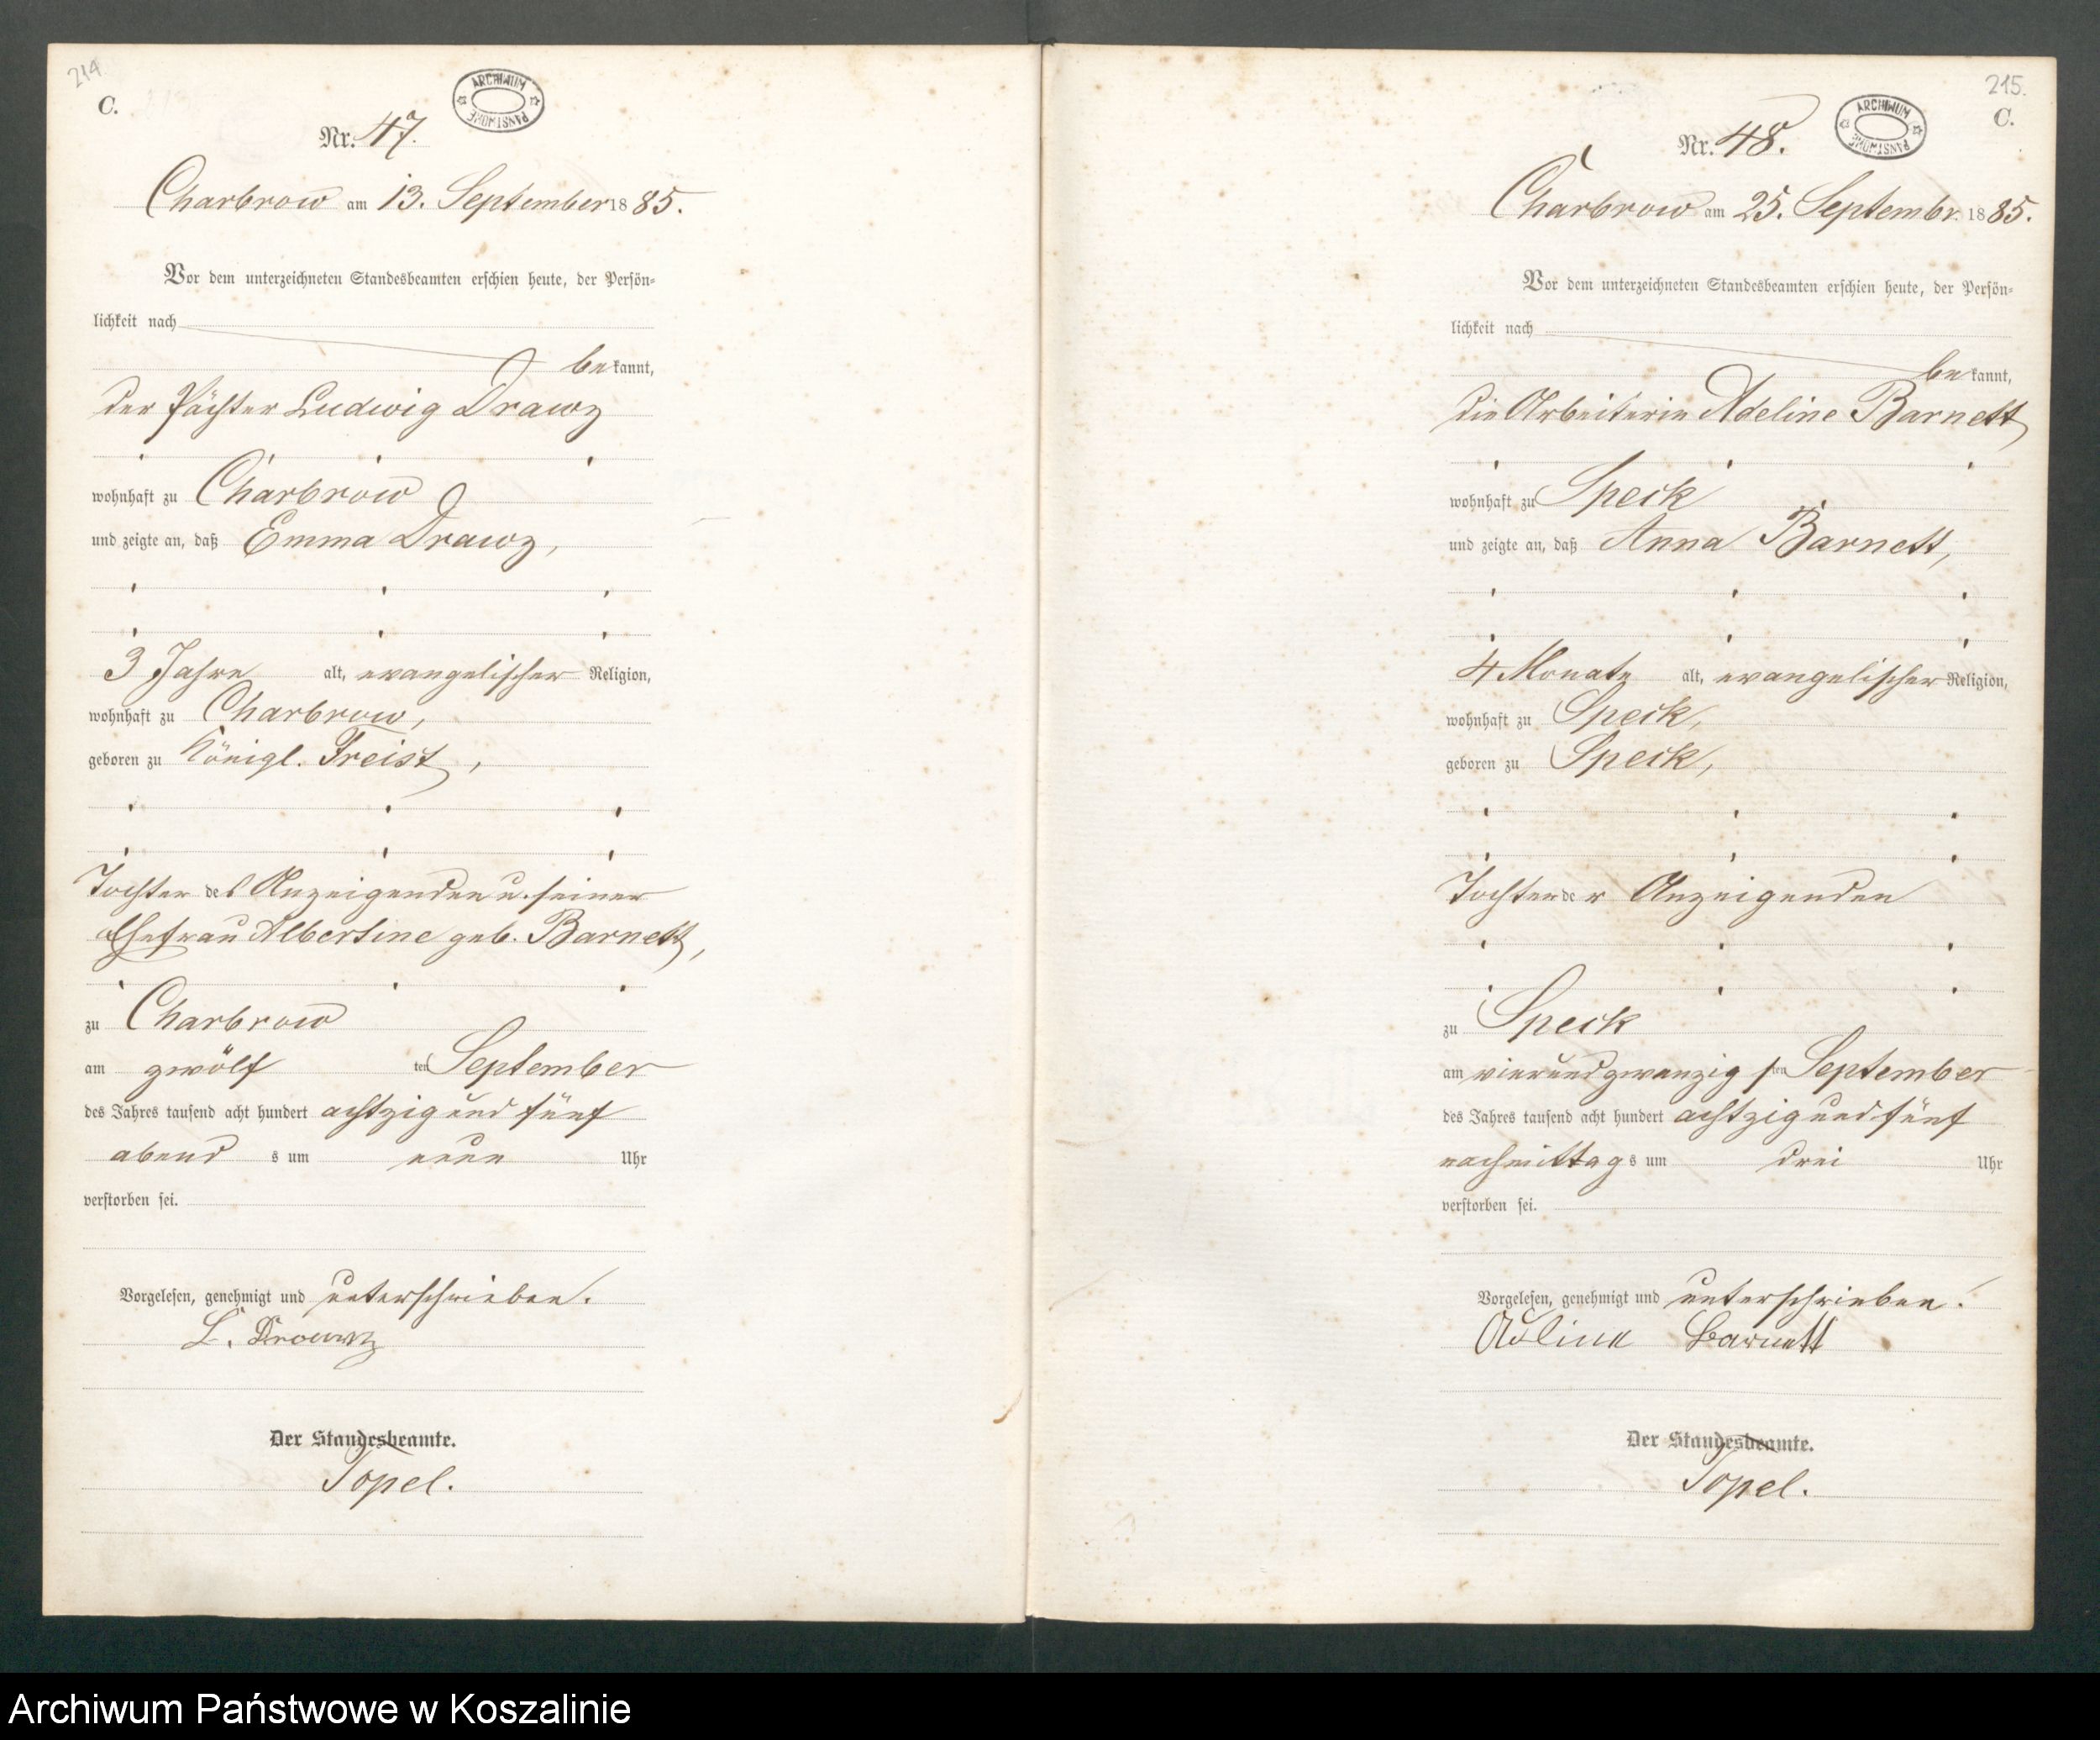 214
C.
ARCHIWUM PAŃSTWOWE
Nr. 47.
Charbrow am 13. September 1885.
Vor dem unterzeichneten Standesbeamten erschien heute, der Persön-
lichkeit nach
bekannt,
der Pächter Ludwig Drawz
wohnhaft zu Charbrow
und zeigte an, daß Emma Drawz,
3 Jahre alt, evangelischer Religion,
wohnhaft zu Charbrow,
geboren zu Königl. Freist,
Tochter des Anzeigenden u. seiner
Ehefrau Albertine geb. Barnett,
zu Charbrow
am zwölf ten September
des Jahres tausend acht hundert achtzig und fünf
abends um neun Uhr
verstorben sei.
Vorgelesen, genehmigt und unterschrieben.
L. Drawz
Der Standesbeamte.
Topel.
215.
C.
ARCHIWUM PAŃSTWOWE
Nr. 48.
Charbrow am 25. Septembr. 1885.
Vor dem unterzeichneten Standesbeamten erschien heute, der Persön-
lichkeit nach
bekannt,
die Arbeiterin Adeline Barnett
wohnhaft zu Speck
und zeigte an, daß Anna Barnett,
4 Monate alt, evangelischer Religion,
wohnhaft zu Speck,
geboren zu Speck,
Tochter der Anzeigenden
zu Speck
am vierundzwanzigsten September
des Jahres tausend acht hundert achtzig und fünf
nachmittags um drei Uhr
verstorben sei.
Vorgelesen, genehmigt und unterschrieben.
Adline Barnett
Der Standesbeamte.
Topel.
Archiwum Państwowe w Koszalinie